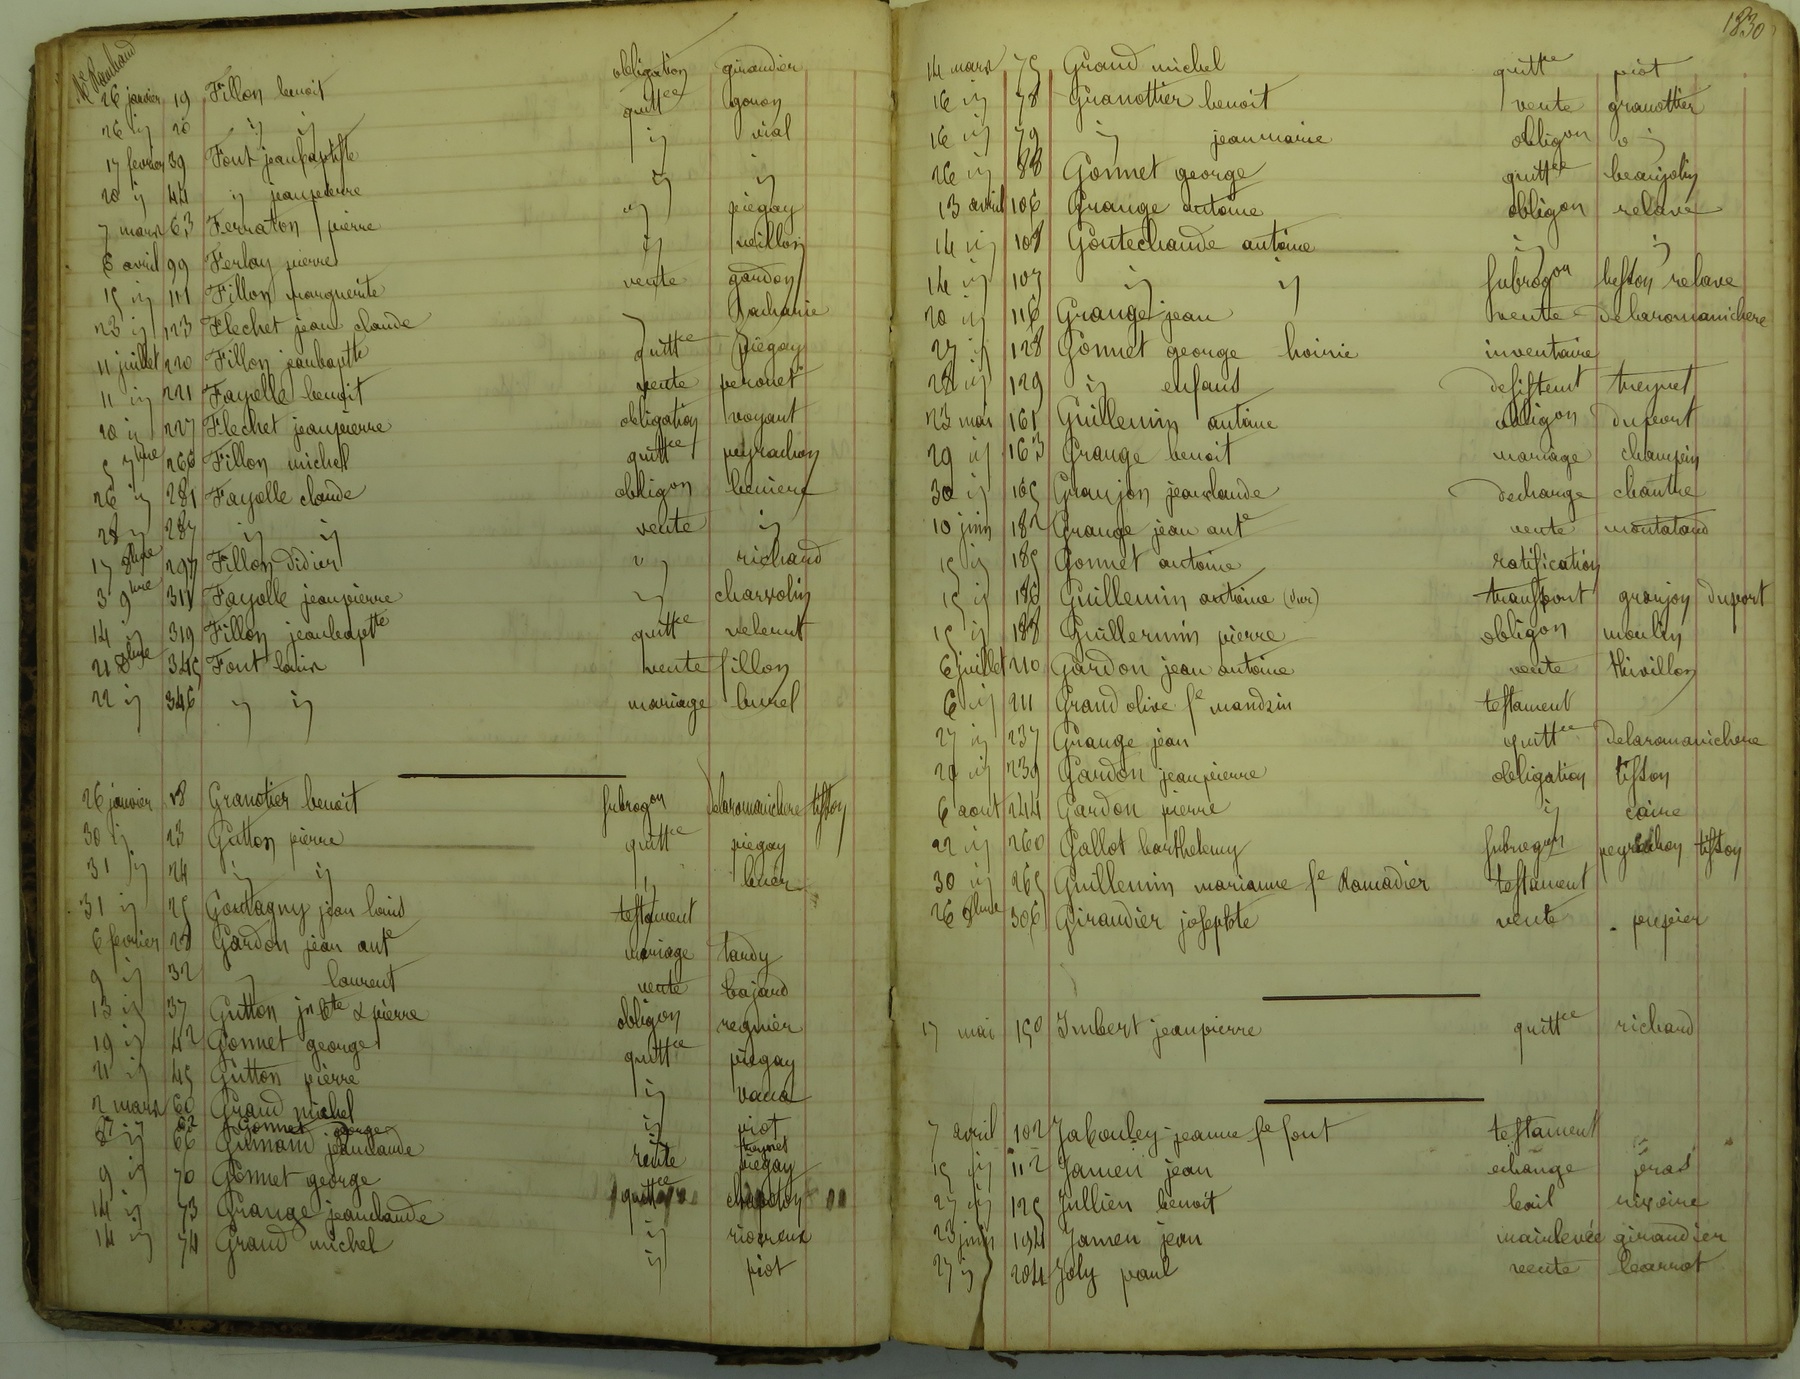 Me Ramhaud
26 janvier 19 Fillon benoit obligation giraudier
26 ij 20 ij ij quittce gonon
17 fevrier 39 Font jeanbaptiste ij vial
20 ij 44 ij jeanpierre ij ij
7 mars 63 Ferraton pierre ij piegay
6 avril 99 Ferlay pierre ij veillon
15 ij 111 Fillon marguerite vente gardon
23 ij 123 Flechet jean claude ij Zacharie
11 juillet 220 Fillon jeanbaptte quittce piegay
11 ij 221 Fayolle benoit vente peronet
20 ij 227 Flechet jeanpierre obligation voyant
5 7bre 266 Fillon michel quittce peyrachon
26 ij 281 Fayolle claude obligon beniere
28 ij 287 ij ij vente ij
17 8bre 297 Fillon Didier ij richaud
3 9bre 311 Fayolle jeanpierre ij charvolin
14 ij 319 Fillon jeanbaptte quittce velerut
21 Xbre 345 Font louis vente fillon
22 ij 346 ij ij mariage burel
26 janvier 18 Granotier benoit subrogon delaromanichere tisson
30 ij 23 Gutton pierre quittce piegay
31 ij 24 ij ij ij
31 ij 25 Goutagny jean louis testament
6 fevrier 28 Gardon jean ante mariage tardy
9 ij 32 ij laurent vente bajard
13 ij 37 Gutton jn bte & pierre obligon regnier
19 ij 42 Gonnet george quittce piegay
21 ij 45 Gutton pierre ij
2 mars 60 Grand michel ij piot
62 Gonnet george treynet
8 ij 66 Gumand jeanclaude vente piegay
9 ij 70 Gonnet george quittce chapoton
14 ij 73 Grange jeanclaude ij rioreux
14 ij 74 Grand michel ij piot
1830
14 mars 75 Grand michel quittce piot
16 ij 78 Granottier benoit vente granottier
16 ij 79 ij jeanmarie obligon ij
26 ij 88 Gonnet george quittce beaujolin
13 avril 106 Grange antoine obligon relave
14 ij 108 Gontechaude antoine ij ij
14 ij 109 ij ij subrogon besson relave
20 ij 116 Grange jean vente delaromanichere
27 ij 128 Gonnet george hoirie inventaire
28 ij 129 ij enfans desistemt treynet
23 mai 161 Guillemin antoine obligon duport
29 ij 163 Grange benoit mariage champin
30 ij 165 Granjon jeanclaude decharge chantre
10 juin 182 Grange jean ante vente montataud
15 ij 185 Gonnet antoine ratification
15 ij 186 Guillemin antoine transport granjon duport
15 ij 188 Guillermin pierre obligon moulin
6 juillet 210 Gardon jean antoine vente thivillon
6 ij 211 Grand olive fe mandzin testament
27 ij 237 Grange jean quittce delaromanichere
29 ij 239 Gardon jeanpierre obligation tisson
6 aout 244 Gardon pierre ij caire
22 ij 260 Gallot barthelemy subrogon peyrachon tisson
30 ij 265 Guillemin marianne fe Ramadier testament
26 8bre 306 Giraudier josephte vente pupier
17 mai 150 Imbert jeanpierre quittce richaud
7 avril 102 Jabouley jeanne fe font testament
15 ij 112 Jamen jean echange
27 ij 125 Jullien benoit bail
23 juin 194 Jamen jean mainlevée giraudier
27 ij 204 Joly paul vente bearrot